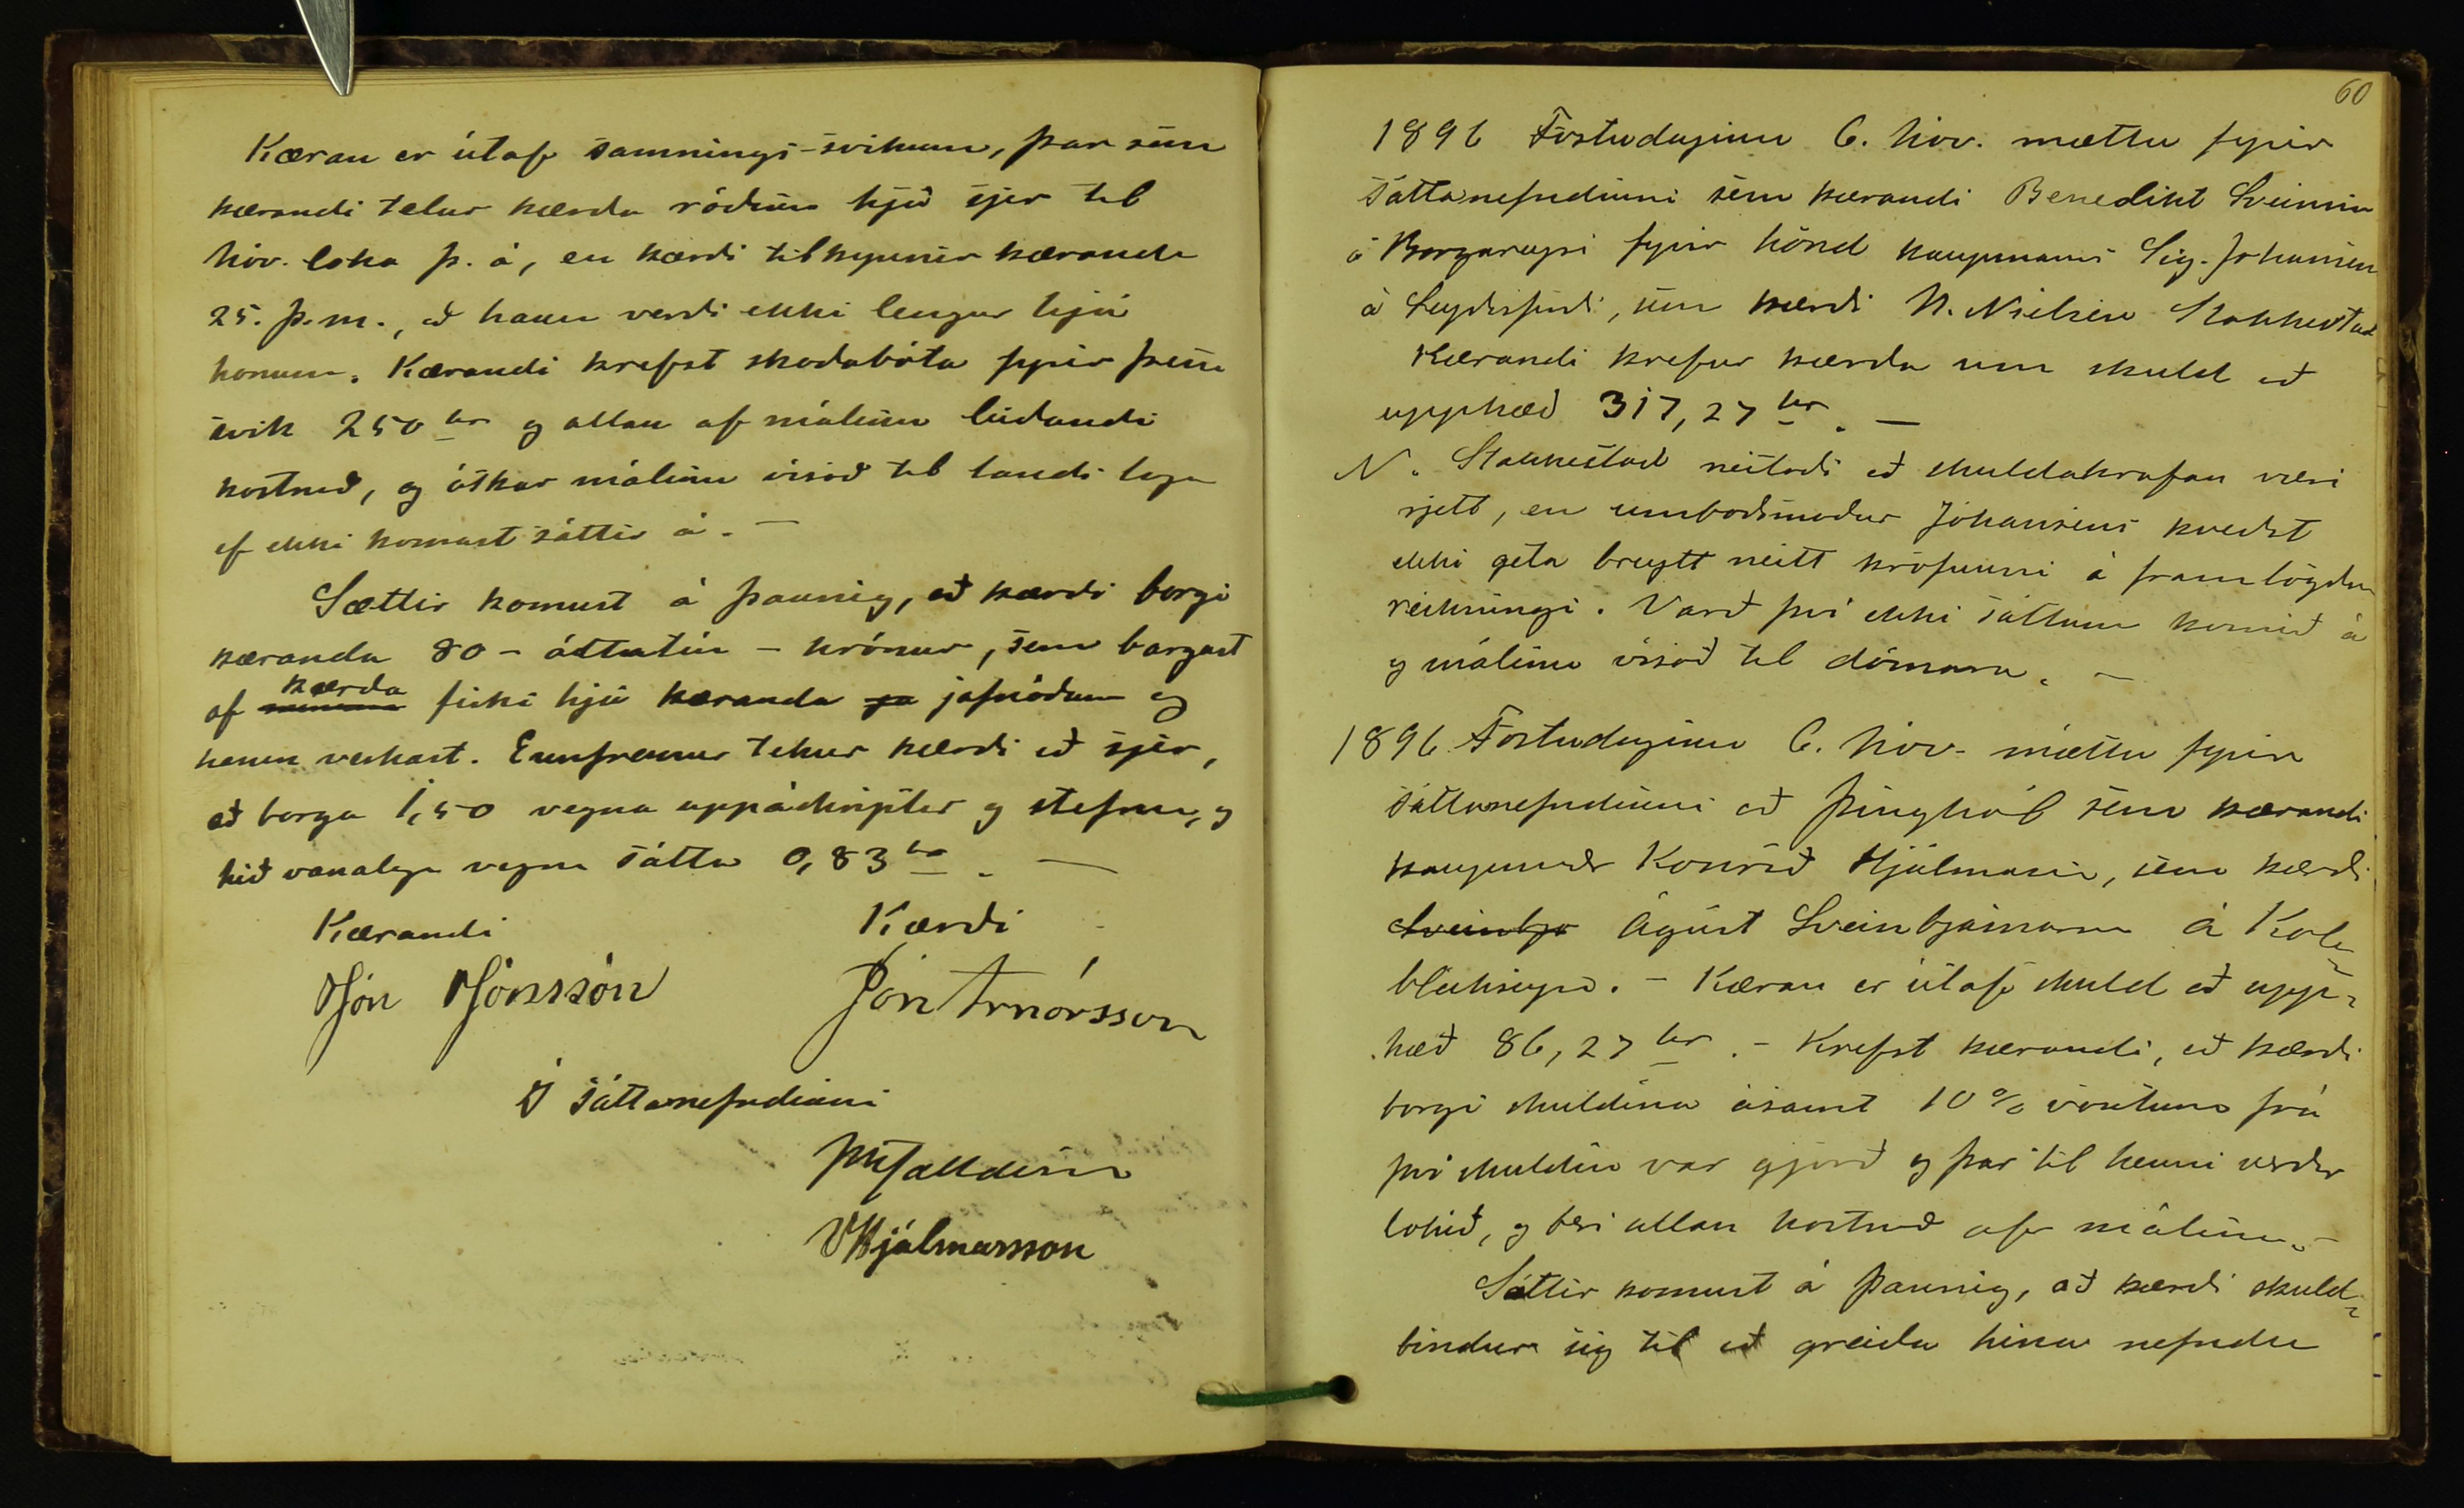 Kæran er útaf samnings-svikum, þar sem
kærandi telur kærða ráðinn hjá sjer til
Nóv. loka þ. á, en kærði tilkynnir kæranda
25. þ.m., að hann verði ekki lengur hjá
honum. Kærandi krefst skaðabóta fyrir þessi
svik 250 kr og allan af málinu leiðandi
kostnað, og óskar málinu vísað til lands laga
ef ekki komast sáttir á. —
Sættir komust á þannig, að kærði borgi
kæranda 80 - áttatíu - krónur, sem borgast
kærda
af fiski hjá kæranda jafnóðum og
hann verkast. Ennfremur tekur kærði að sjer,
að borga 1,50 vegna uppáskriptar og stefnu, og
hið vanalega vegna sátta 0,83 kr. —
Kærandi Kærði
Jón Jónsson Jón Arnórsson
Í sáttanefndinni
V Hjálmarsson
60
1896 Föstudaginn 6. Nóv. mættu fyrir
sáttanefndinni sem kærandi Benedikt Sveinsson
á Borgareyri fyrir hönd kaupmanns Sig. Johansen
á Seyðisfirði, sem kærði N. Nielsen Stokkestad
Kærandi krefur kærða um skuld að
upphæð 317,27 kr. —
N. Stokkestad neitaði að skuldakrafan væri
rjett, en umboðsmaður Jóhansens kveðst
ekki geta breytt neitt kröfunni á framlögðum
reikningi. Varð því ekki sáttum komið á
og málinu vísað til dómara. —
1896 Föstudaginn 6. Nóv. mættu fyrir
sáttanefndinni að Þinghól sem kærandi
kaupmaðr Konráð Hjálmarsson, sem kærði
Sveinbjö Ágúst Sveinbjarnarson á Kola-
bleikseyri. - Kæran er útaf skuld að upp-
hæð 86,27 kr. - Krefst kærandi, að kærði
borgi skuldina ásamt 10% vöxtum frá
því skuldin var gjörð og þar til henni verður
lokið, og beri allan kostnað af málinu. —
Sættir komust á þannig, að kærði skuld-
bindur sig til að greiða hina nefndu